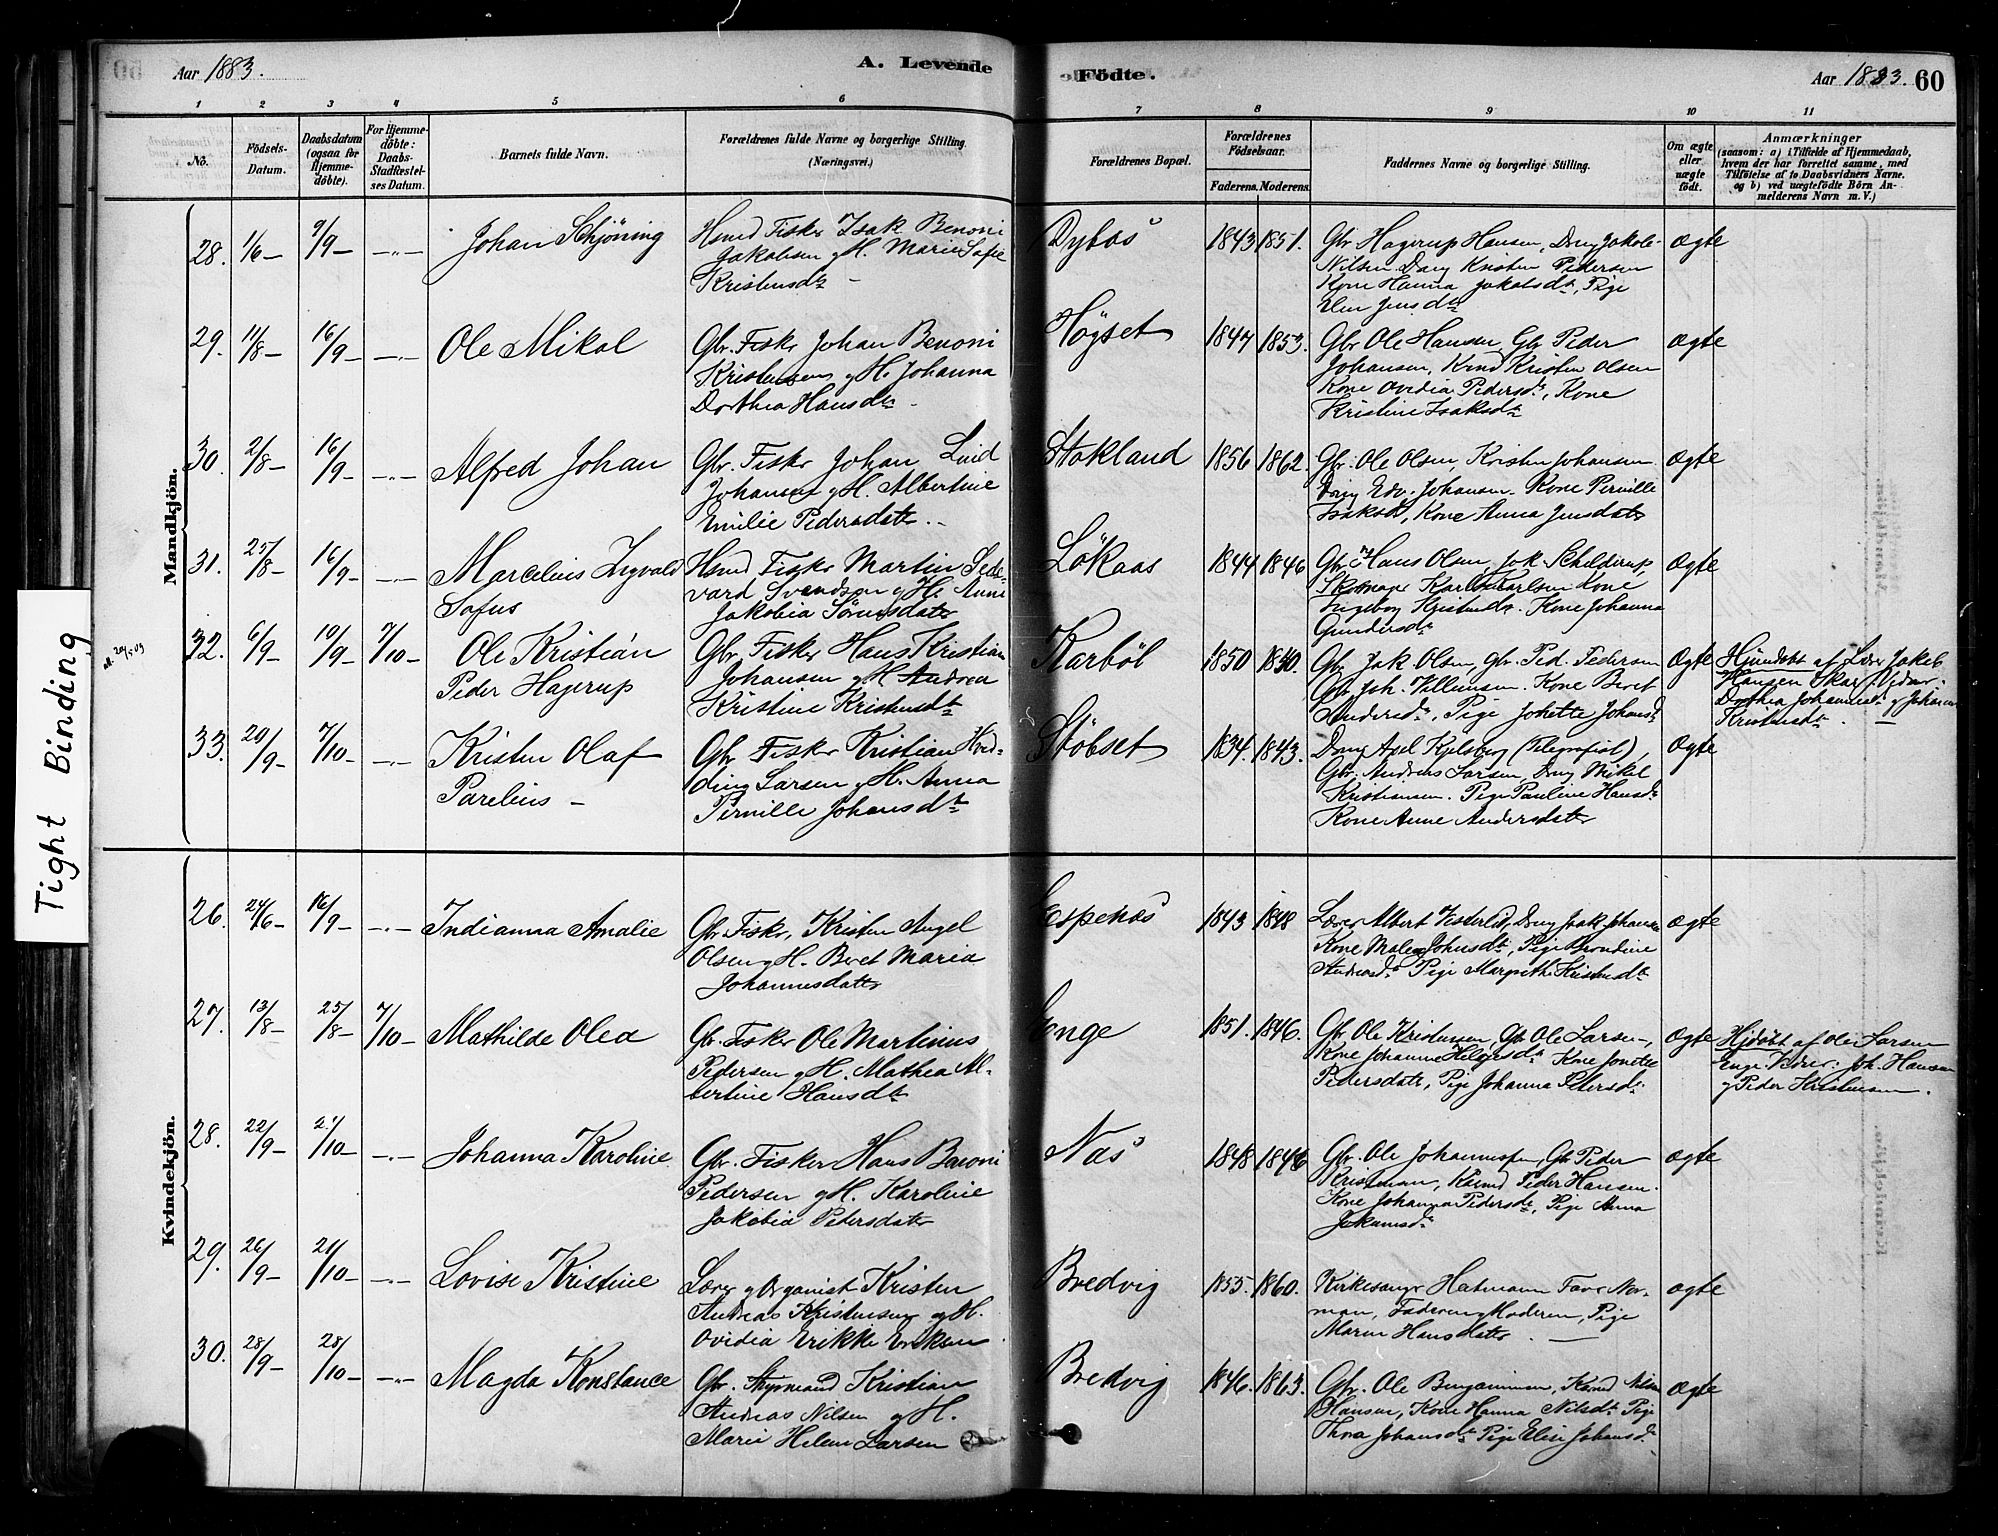 Aar 1883. A. Levende Födte. Aar 1883. 60
1 2 3 4 5 6 7 8 9 10 11
No. Födsels-Datum. Daabsdatum (ogsaa for Hjemmedöbte). For Hjemmedöbte: Daabs-Stadfæstelses Datum. Barnets fulde Navn. Forældrenes fulde Navne og borgerlige Stilling. (Næringsvei.) Forældrenes Bopæl. Forældrenes Födselsaar. Faderens. Moderens. Faddernes Navne og borgerlige Stilling. Om ægte eller uægte födt. Anmærkninger (saasom: a) i Tilfælde af Hjemmedaab, hvem der har forrettet samme, med Tilföielse af to Daabsvidners Navne. og b) ved uægtefödte Börn Anmelderens Navn m. V.)
Mandkjön.
28. 1/6 - 9/9 - Johan Schjöning
Hsmd Fisker Isak Benoni
Jakobsen og H. Marie Sofie
Kristensdtr -
Dybos 1843 1851.
Gbr Hagerup Hansen, Dreng Jakob
Nilsen Dreng Kristen Pedersen
Kone Hanna Jakobsdtr, Pige
Elen Jensdtr
ægte
29. 11/8 - 16/9 - Ole Mikal
Gbr. Fisker Johan Benoni
Kristensen og H. Johanna
Dorthea Hansdtr -
Høgset 1847 1853.
Gbr Ole Hansen, Gbr Peder
Johansen, Kristen Olsen
Kone Ovidia Pedersdtr, Kone
Kristine Isaksdtr
ægte
30. 2/8 - 16/9 - Alfred Johan
Gbr. Fisker Johan
Johansen og H. Albertine
Emilie Pedersdatr -
Stokland 1856 1862.
Gbr. Ole Olsen, Kristen Johansen
Dreng Edv. Johansen. Kone Pernille
Isaksdtr, Kone Anna Jensdatr
ægte
31. 25/8 - 16/9 - Marcelius Ingvald
Sofus
Hsmd Fisker Martin Sede-
vard Svendsen og H. Anne
Jakobia Sörensdatr
Lökaas 1844 1846
Gbr Hans Olsen, Jak. Schilderup
Skomager Karl Karlsen Kone
Ingeborg Kristensdtr. Kone Johanna
Gundersdtr
ægte
32. 6/9 - 10/9 - 7/10 - Ole Kristian
Peder Hagerup
Gbr. Fisker Hans Kristian
Johansen og H. Andrea
Kristine Kristensdtr
Karböl 1850 1850.
Gbr Jak Olsen, Gbr. Ped. Pedersen
Gbr Joh. Villumsen. Kone Beret
Andersdtr, Pige Johette Johansdtr
ægte
Hjemdøbt af Lærer Jakob
Hansen Vidner:
Dorthea Johannesdtr og Johanna
Kristensdtr. -
33. 20/9 - 7/10 - Kristen Olaf
Parelius -
Gbr Fisker Kristian Hvid-
ding Larsen og H. Anna
Pernille Johansdtr
Stöbset 1834. 1843.
Dreng Axel Kjelsberg (Telegrafist),
Gbr. Andreas Larsen, Dreng Mikal
Kristiansen. Pige Pauline Hansdtr
Kone Anne Andersdatr
ægte
Kvindekjön.
26. 24/6 - 16/9 - Indianna Amalie
Gbr. Fisker, Kristen Angel
Olsen og H. Beret Maria
Johannesdatr
Espenes 1843 1848
Lærer Albert Vesterlid, Dreng Isak Johansen
Kone Malena Johnsdtr, Pige Brondine
Andreasdtr Pige Margrethe Kristensdtr
ægte
27. 13/8 - 25/8 - 7/10 - Mathilde Olea
Gbr. Fisker Ole Martinus
Pedersen og H. Mathea Al-
bertine Hansdtr
Enge 1851. 1846.
Gbr Ole Kristensen, Gbr Ole Larsen,
Kone Johanna Helgesdtr Kone Jonette
Pedersdatr, Pige Johanna Petersdtr
ægte
Hjdøbt af Ole Larsen
Enge Vidner: Joh. Hansen
og Peder Kristensen.
28. 22/9 - 21/10 - Johanna Karoline
Gbr. Fisker Hans Benoni
Pedersen og H. Karoline
Jakobia Petersdatr
Nas 1848 1846
Gbr. Ole Johannessen, Gbr Peder
Kristensen, Peder Hansen.
Kone Johanna Pedersdtr, Pige Anna
Johansdtr
ægte
29. 26/9 - 21/10 - Lovise Kristine
Lærer og Organist Kristen
Andreas Kristensen og H.
Ovidia Erikke Eriksen
Bredvig 1855. 1860.
Kirkesanger Hatmann Fave Nor-
man, Faderen og Moderen, Pige
Maren Hansdatr
ægte
30. 28/9 - 28/10 - Magda Konstance
Gbr. Styrmand Kristian
Andreas Nilsen og H.
Marie Helene Larsen
Bredvig 1846. 1863.
Gbr. Ole Benjaminsen, Nils
Hansen, Kone Hanna Nilsdtr Pige
Thora Johansdtr Pige Elise Johansdtr
ægte
Tight Binding